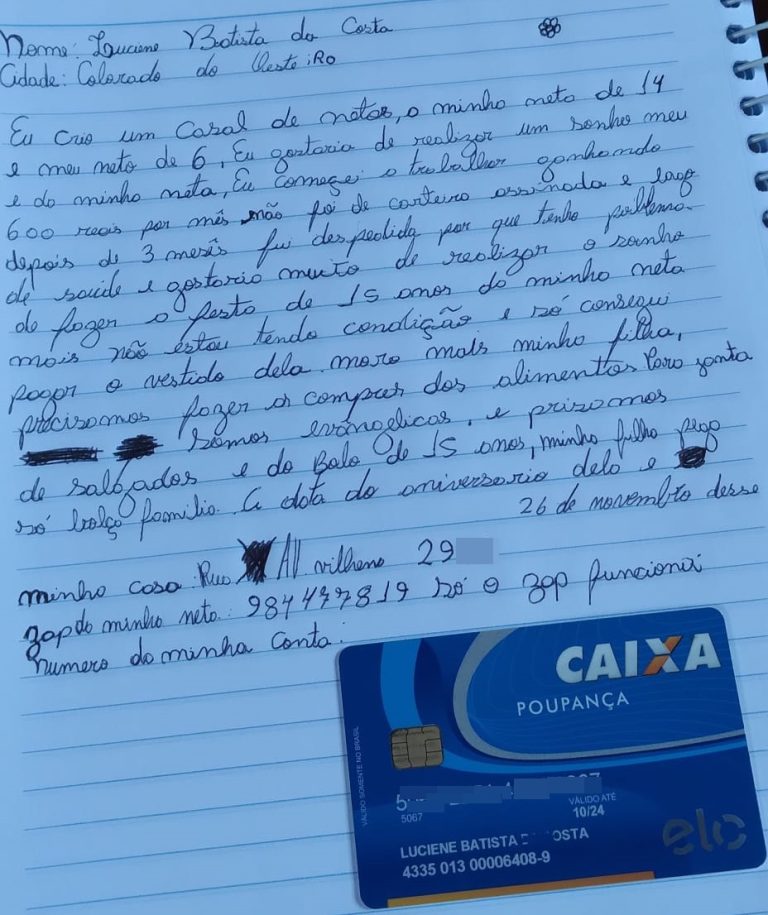 Nome: Luciene Batista da Costa
Cidade: Colorado do Oeste iRO
Eu crio um Casal de netos, a minha neta de 14
e meu neto de 6, Eu gostaria de realizar um sonho meu
e da minha neta, Eu começei a trabalhar ganhando
600 reais por mês não foi de carteira assinada e logo
depois de 3 mesês fui despedida por que tenho poblema
de saúde e gostaria muito de realizar o sonho
de fazer a festa de 15 anos da minha neta
mais não estou tendo condição e só consegui
pagar o vestido dela. moro mais minha filha,
precisamos fazer as compras dos alimentos Para janta
Somos evangelicos. e prizamos
de salgados e do Bolo de 15 anos, minha filha pega
só bolça familia. A data do aniversario dela e
26 de novembro desse
minha casa Rua AV vilhena 29
zap da minha neta: 984477819 só o zap funciona
Numero da minha Conta:
CAIXA
POUPANÇA
VÁLIDO SOMENTE NO BRASIL
5067
VÁLIDO ATÉ
10/24
LUCIENE BATISTA D OSTA
4335 013 00006408-9
elo